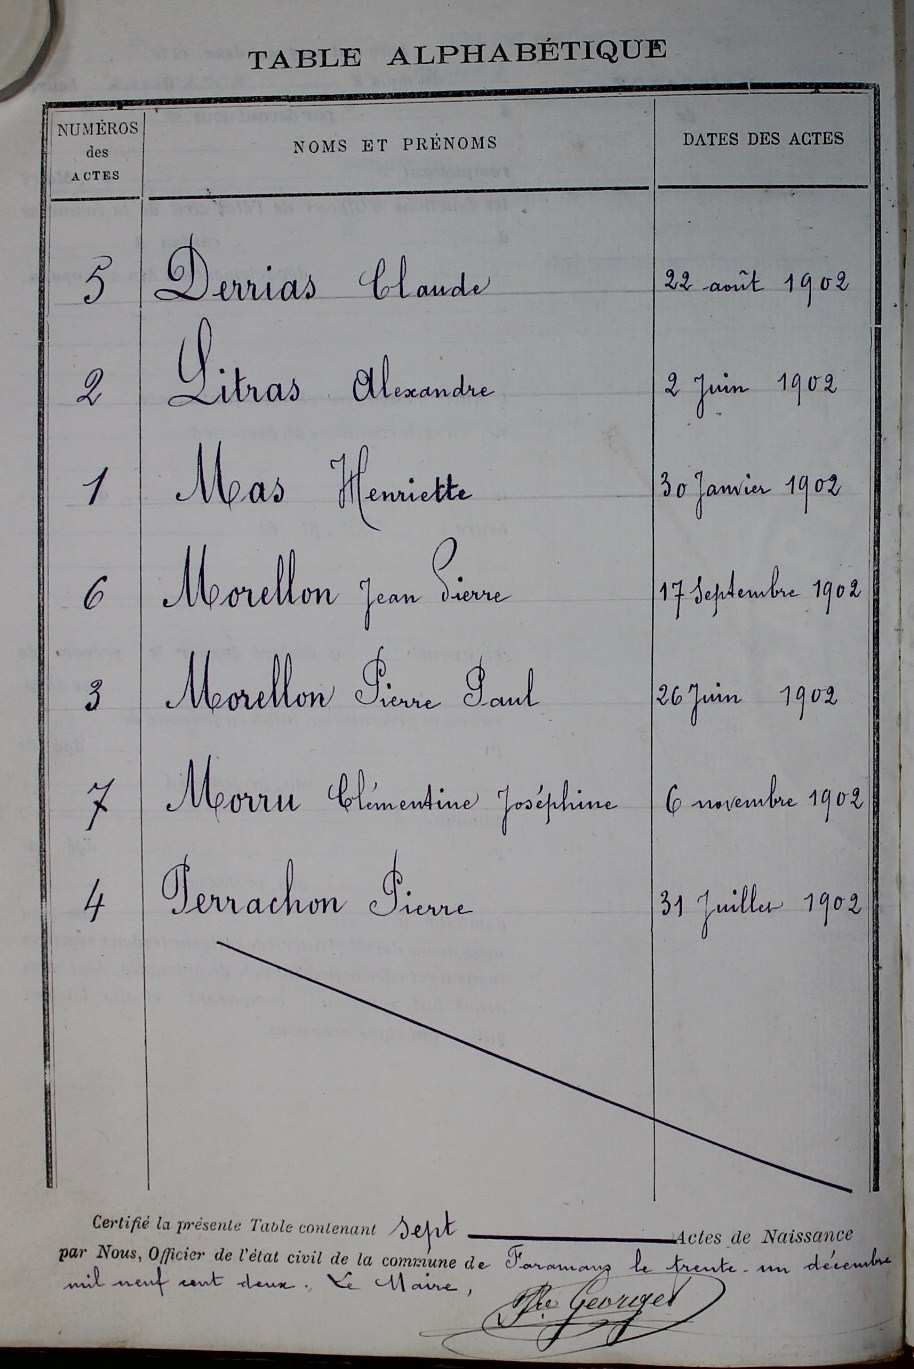 TABLE ALPHABÉTIQUE
NUMÉROS des ACTES NOMS ET PRÉNOMS DATES DES ACTES
5 Derrias Claude 22 août 1902
2 Litras Alexandre 2 Juin 1902
1 Mas Henriette 30 Janvier 1902
6 Morellon Jean Pierre 17 Septembre 1902
3 Morellon Pierre Paul 26 Juin 1902
7 Morru Clémentine Joséphine 6 novembre 1902
4 Perrachon Pierre 31 Juillet 1902
Certifié la présente Table contenant sept Actes de Naissance
par Nous, Officier de l'état civil de la commune de Faramans le trente-un décembre
mil neuf cent deux. Le Maire,
Georges